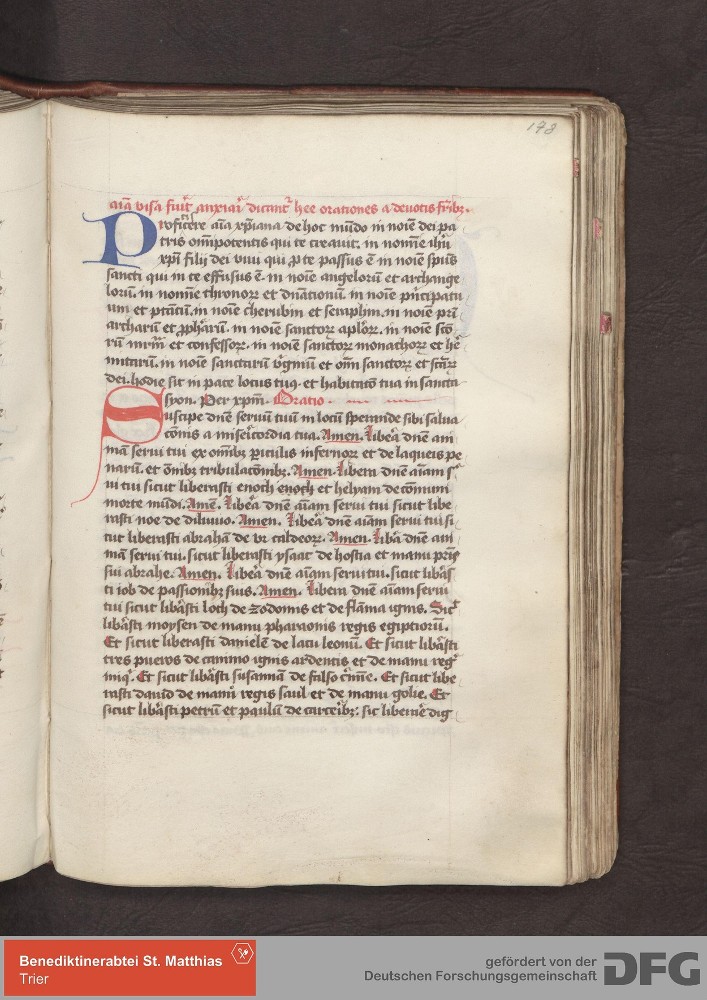 178
aia visa fuit anxiari dicantr hee orationes a devotis fribz.
Proficiscere aia xpiana de hoc mundo in noie dei pa
tris omipotentis qui te creavit. in nomine ihu
xpi filij dei vivi qui p te passus e. in noie spus
sancti qui in te effusus e. in noie angelorum et archange
lorum. in nomine thronor et dnationum. in noie principatu
um et ptatum. in noie cherubin et seraphin. in noie pri
archarum et pphetarum. in noie sanctor aplor. in noie sco
rum mrm et confessor. in noie sanctor monachor et he
mitarum. in noie sanctarum virginum et oim sanctor et scar
dei. hodie sit in pace locus tuq. et habitaco tua in sancta
syon. Per xpm. Oratio.
Suscipe dne servum tuum in locum sperande sibi salva
conis a misericordia tua. Amen. Libera dne ani
mam servi tui ex omibz periculis infernor et de laqueis pe
narum. et omibz tribulaconibz. Amen. Libera dne aiam s
vi tui sicut liberasti enoch enoch et helyam de comuni
morte mundi. Ame. Libera dne aiam servi tui sicut libe
rasti noe de diluvio. Amen. Libera dne aiam servi tui si
cut liberasti abraham de ur caldeor. Amen. Libera dne ani
mam servi tui. sicut liberasti ysaac de hostia et manu pris
sui abrahe. Amen. Libera dne aiam servi tui. sicut libas
ti iob de passionibz suis. Amen. Libera dne aiam servi
tui sicut libasti loth de zodomis et de flama ignis. Sict
libasti moysen de manu pharaonis regis egiptiorum.
Et sicut liberasti danielem de lacu leonum. Et sicut libasti
tres pueros de camino ignis ardentis et de manu reg
iniq. Et sicut libasti susannam de falso crimine. Et sicut libe
rasti david de manu regis saul et de manu golie. Et
sicut libasti petrum et paulum de carceribz. sic liberare dig
Benediktinerabtei St. Matthias
Trier
gefördert von der
Deutschen Forschungsgemeinschaft
DFG